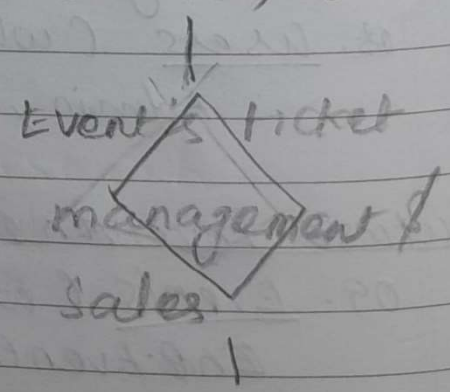 Event's ticket
management &
sales